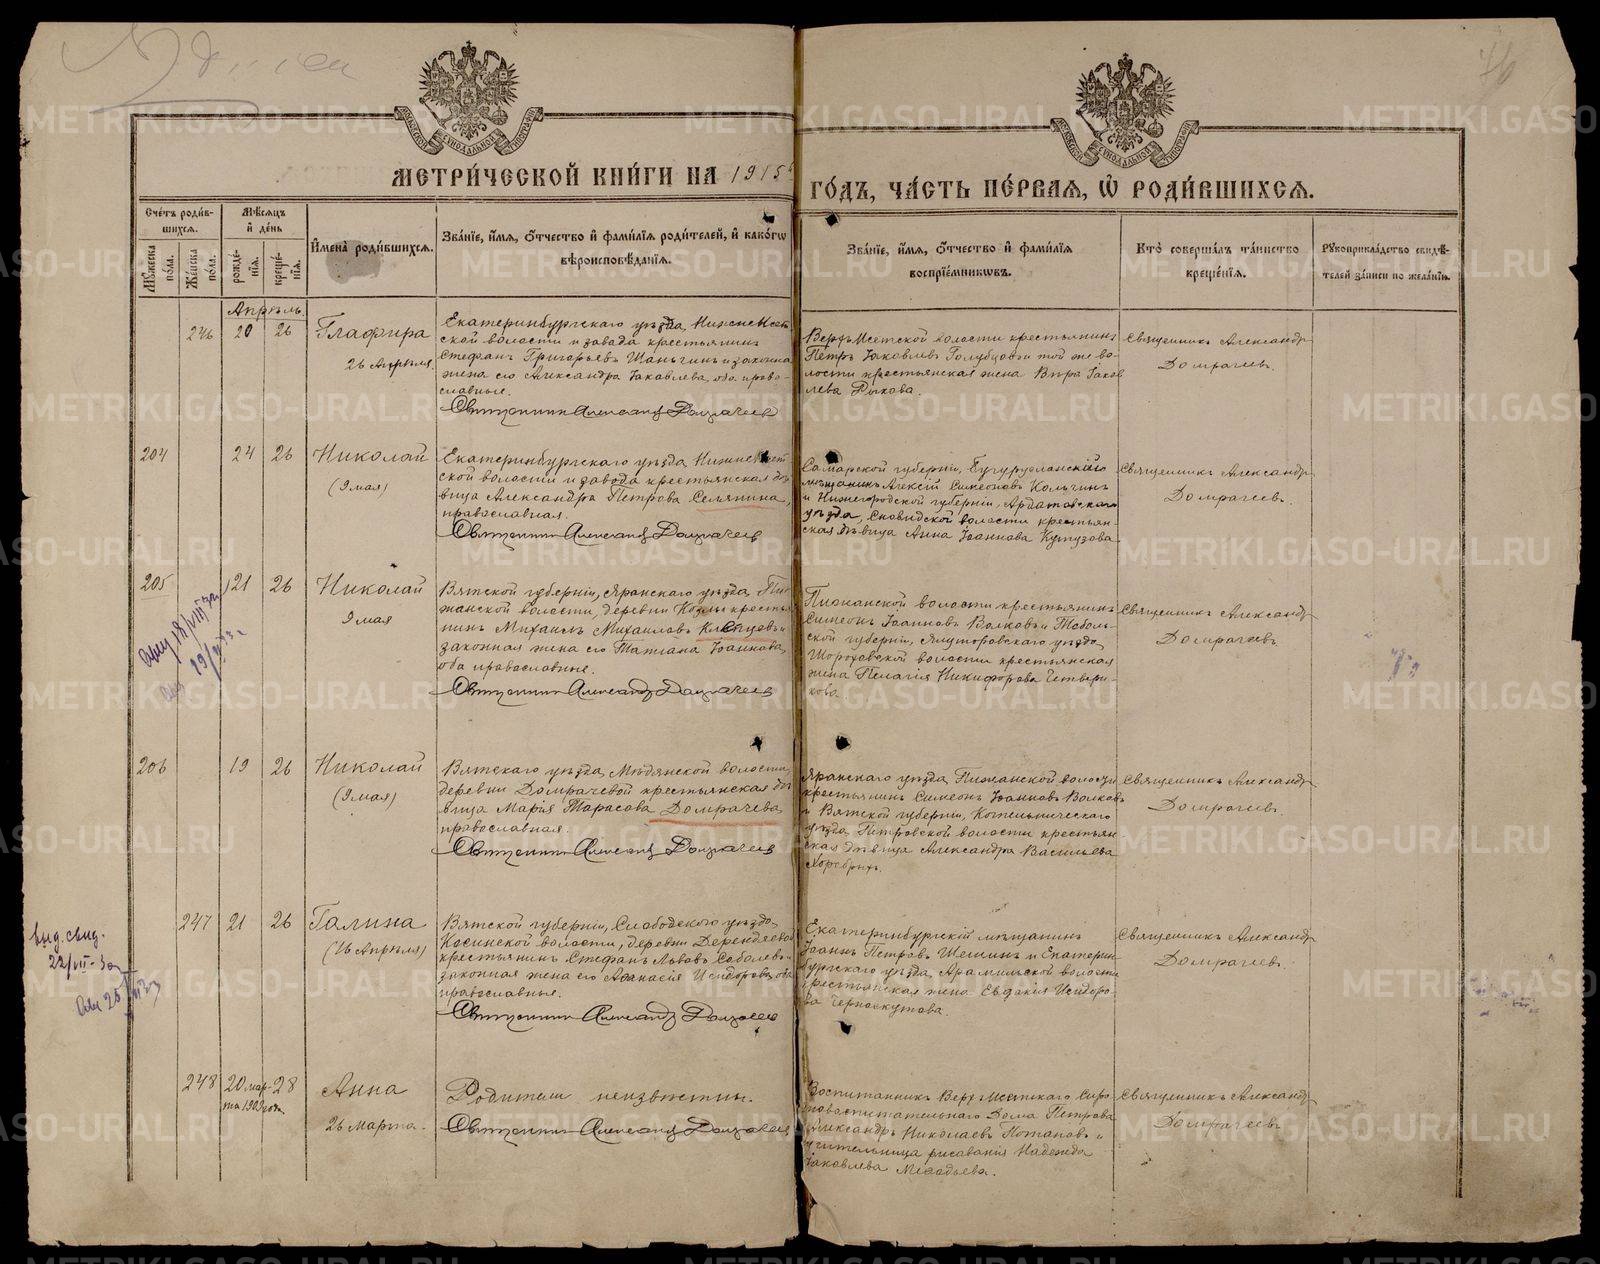 76
МЕТРИ́ЧЕСКОЙ КНИ́ГИ НА 1915й ГО́ДЪ, ЧА́СТЬ ПЕ́РВАЯ, Ѽ РОДИ́ВШИХСЯ.
Сче́тъ роди́в-
шихся.
Мꙋжеска по́ла.
Же́нска по́ла.
Мѣ́сяцъ
и҆ де́нь
рожде-
нія.
креще-
нія.
И҆мена̀ роди́вшихся.
Зва́ніе, и҆́мя, ѻ҆́тчество и҆ фами́лія роди́телей, и҆ како́гѡ
вѣроисповѣ́данія.
Зва́ніе, и҆́мя, ѻ҆́тчество и҆ фами́лія
воспріе́мникѡвъ.
Кто̀ соверша́лъ та́инство
креще́нія.
Рꙋкоприкла́дство свидѣ́-
телей за́писи по жела́нію.
Апрѣль.
246 20 26 Глафира
26 Апрѣля
Екатеринбургскаго уѣзда, Нижне Исет-
ской волости и завода крестьянинъ
Стефанъ Григорьевъ Шаньгинъ и законная
жена его Александра Іаковлева, оба право-
славные.
Священникъ Александр Домрачеев
Верхъ Исетской волости крестьянинъ
Петръ Іаковлевъ Голубцовъ и той же во-
лости крестьянская жена Вѣра Іаков
лева Рыкова.
Священникъ Александръ
Домрачеевъ.
204 24 26 Николай
(9 мая)
Екатеринбургскаго уѣзда Нижне Исет
ской волости и завода крестьянская дѣ
вица Александра Петрова Селянина,
православная.
Священник Александр Домрачеев
Самарской губерніи, Бугурусланскій
мѣщанинъ Алексій Симеоновъ Кольчинъ
и Нижегородской губерніи, Ардатовскаго
уѣзда, волости крестьян-
ская дѣвица Анна Іоаннова Кутузова.
Священникъ Александръ
Домрачеевъ.
205 21 26 Николай
9 мая
Вятской губерніи, Яранскаго уѣзда, Пи-
жанской волости, деревни крестья
нинъ Михаилъ Михаиловъ Клепцовъ и
законная жена его Татіана Іоаннова,
оба православные.
Священник Александр Домрачеев
Пижанской волости крестьянинъ
Симеонъ Іоанновъ Волковъ и Тоболь-
ской губерніи, Ялуторовскаго уѣзда,
Шороховской волости крестьянская
жена Пелагія Никифорова Четвери-
кова.
Священникъ Александръ
Домрачеевъ.
206 19 26 Николай
(9 мая)
Вятскаго уѣзда, Мѣдянской волости,
деревни Домрачевой крестьянская дѣ
вица Марія Тарасова Домрачева,
православная.
Священник Александр Домрачеев
Яранскаго уѣзда Пижанской волости
крестьянинъ Симеонъ Іоанновъ Волковъ
и Вятской губерніи, Котельническаго
уѣзда, Петровской волости крестьян
ская дѣвица Александра Васильева
Священникъ Александръ
Домрачеевъ.
выд. свид.
22/VII-30г
247 21 26 Галина
(16 Апрѣля)
Вятской губерніи, Слободского уѣзда,
Косинской волости, деревни Дерендяевой
крестьянинъ Стефанъ Львовъ Соболевъ и
законная жена его Аѳанасія Исидорова, оба
православные.
Священник Александр Домрачеев
Екатеринбургскій мѣщанинъ
Іоаннъ Петровъ Шешинъ и Екатерин-
бургскаго уѣзда, Арамильской волости
крестьянская жена Евдокія Исидоро-
ва Черноскутова.
Священникъ Александръ
Домрачеевъ.
248 20 мар- 28 Анна
та 1909 года
26 Марта.
Родители неизвѣстны.
Священник Александр Домрачеев
Воспитанникъ Верх Исетскаго Сиро-
повоспитательнаго Дома Петрова
Александръ Николаевъ Потаповъ и
учительница рисованія Надежда
Іаковлева
Священникъ Александръ
Домрачеевъ.
METRIKI.GASO-URAL.RU